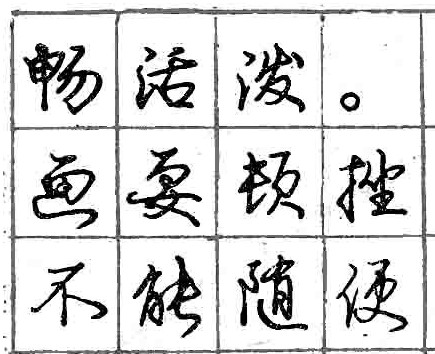 畅活泼。
画要顿挫
不能随便